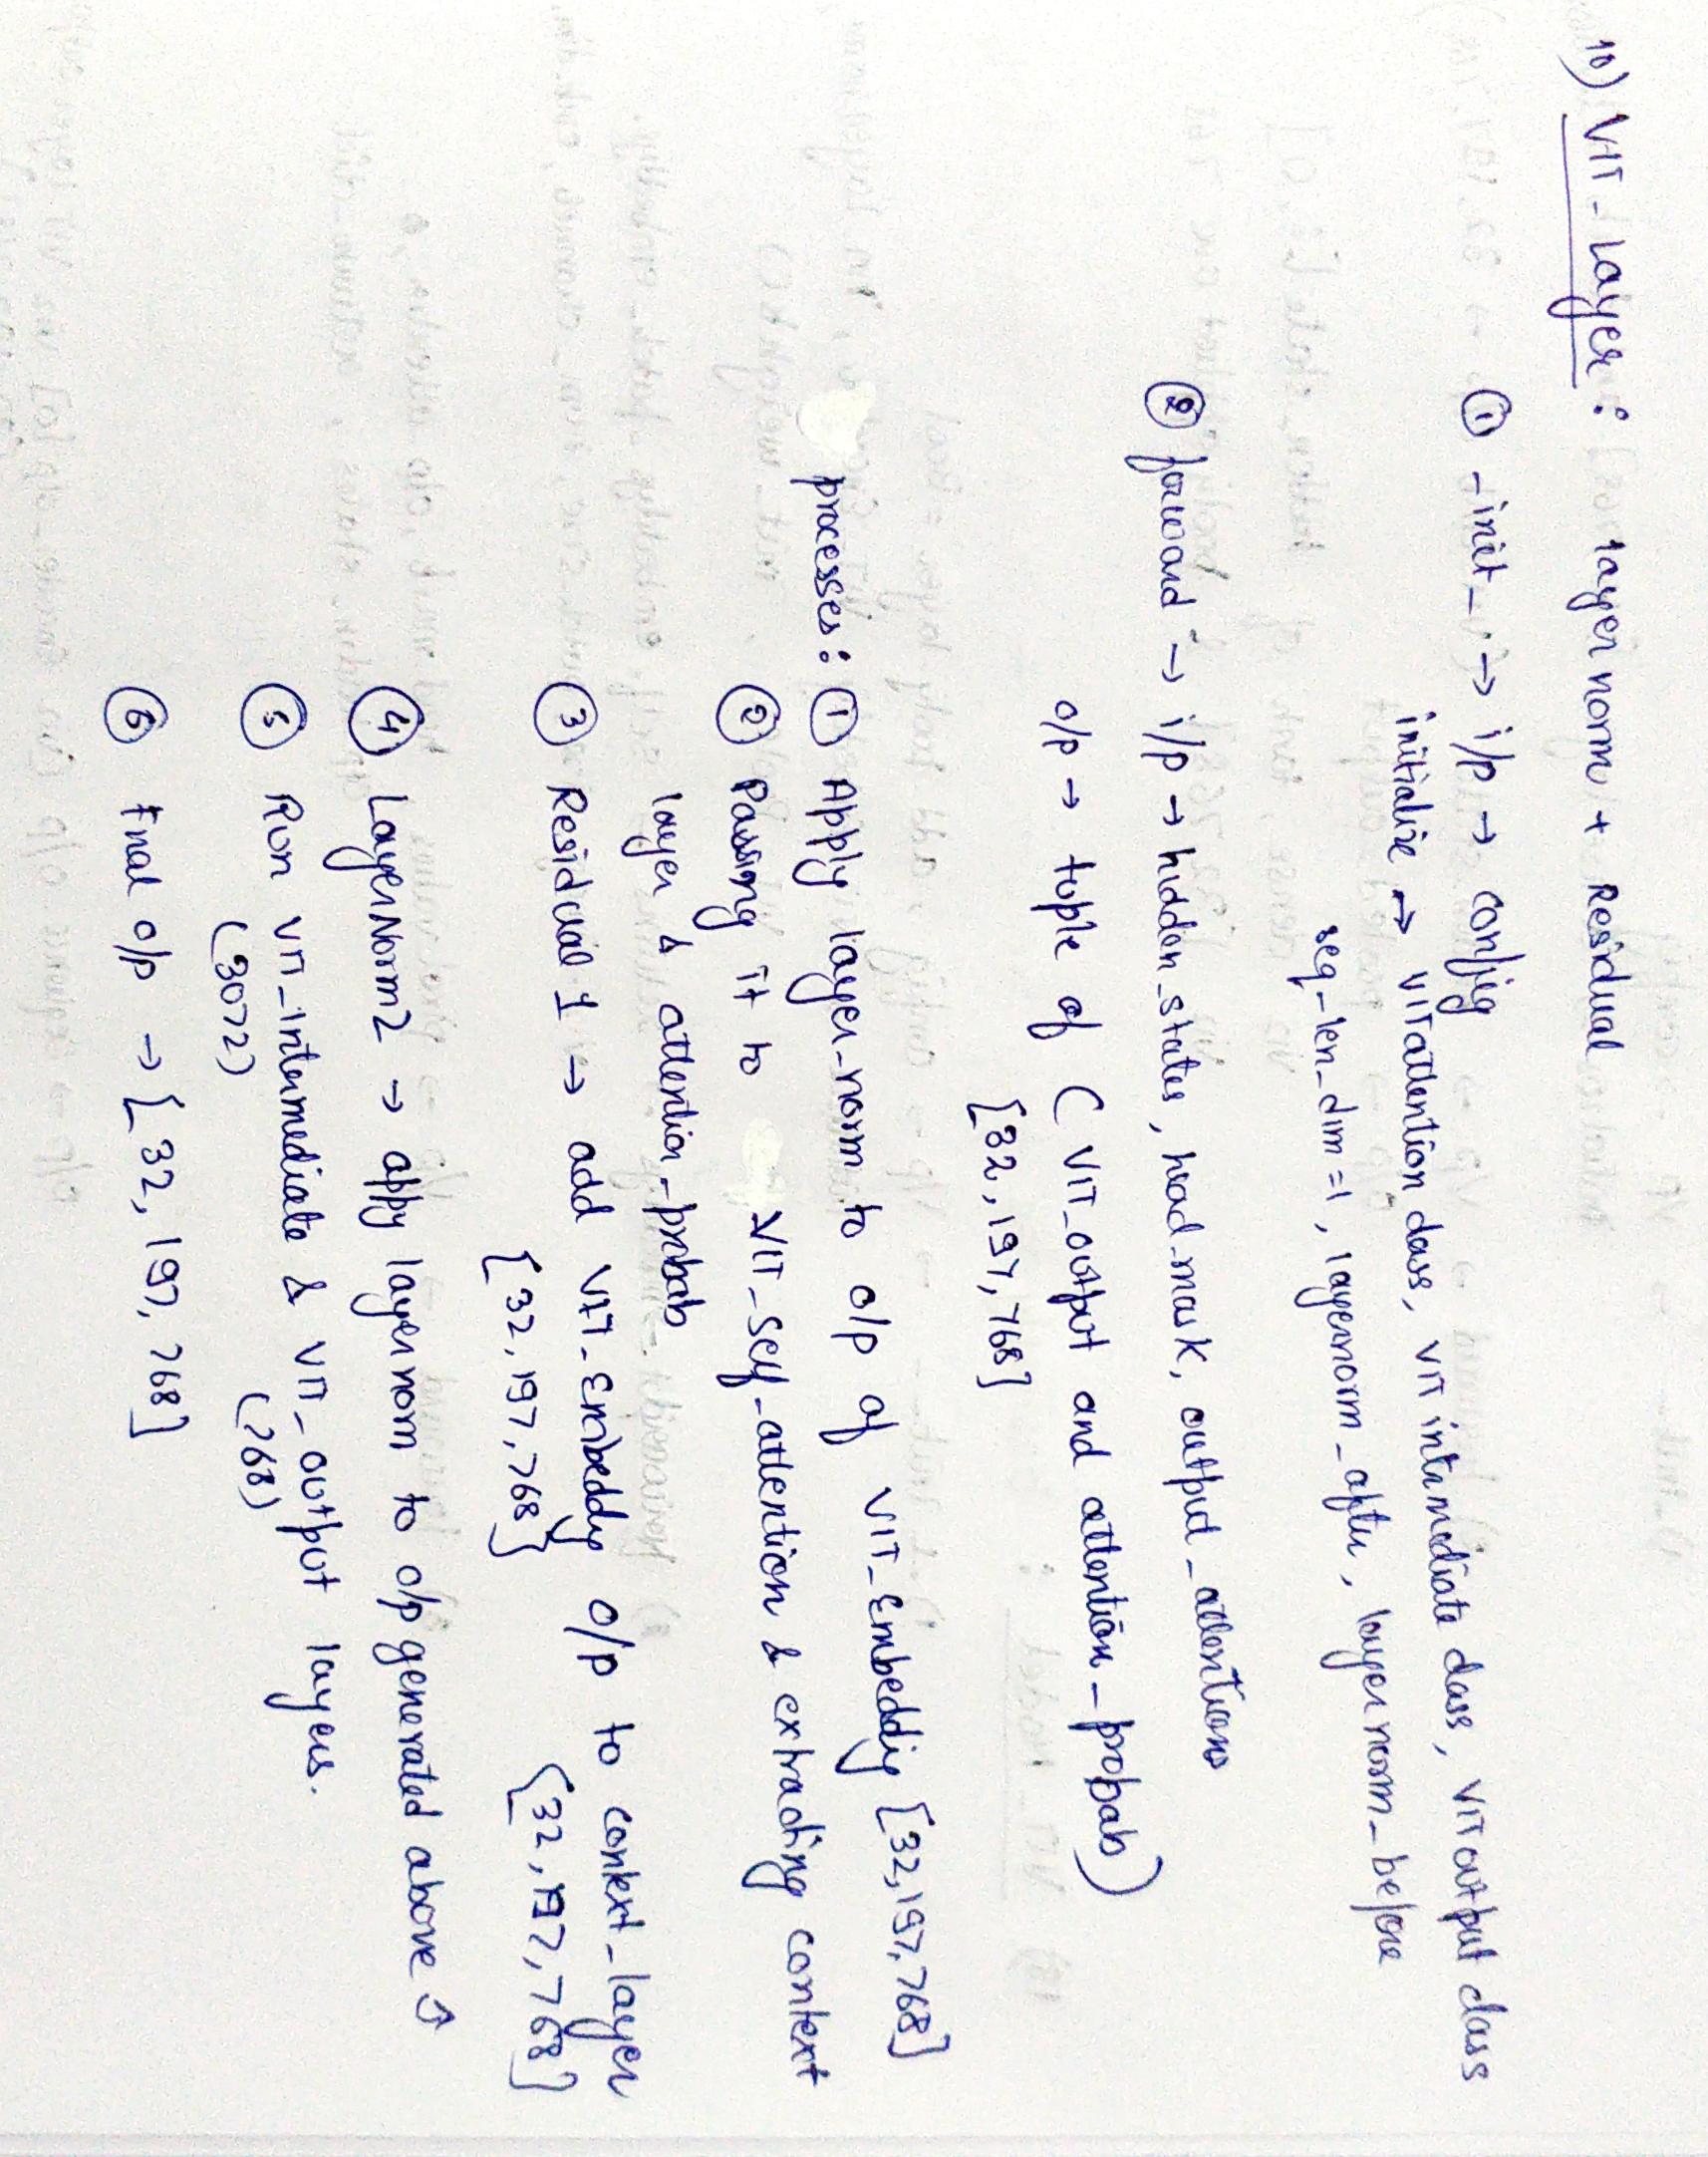 10) VIT-Layer : layer norm + Residual
① _init_ → i/p → config
initialize → VITattention class, VIT intermediate class, VIT output class
seq-len-dim = 1, layernorm_after, layernorm_before
② forward → i/p → hidden_states, head_mask, output_attentions
o/p → tuple of (VIT_output and attention-probab)
[32, 197, 768]
processes: ① Apply layer-norm to o/p of VIT_Embeddig [32, 197, 768]
② Passing it to VIT_self_attention & extracting context
layer & attention_probab
③ Residual 1 → add VIT-Embeddg o/p to context_layer
[32, 197, 768] [32, 197, 768]
④ LayerNorm2 → apply layernorm to o/p generated above ↑
⑤ Run VIT_intermediate & VIT_output layers.
(3072) (768)
⑥ Final o/p → [32, 197, 768]